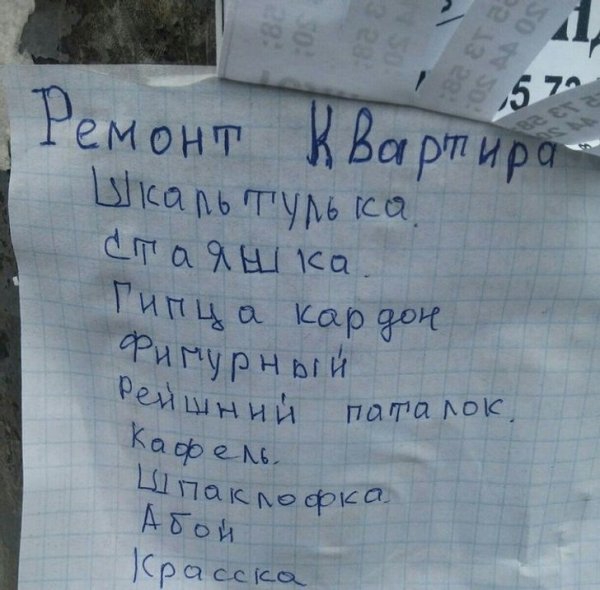 Ремонт Квартира
Шкальтулька.
Стаяшка.
Гипца кардон
Фигурный
Рейшний паталок.
Кафель.
Шпаклофка.
Абой
Красска